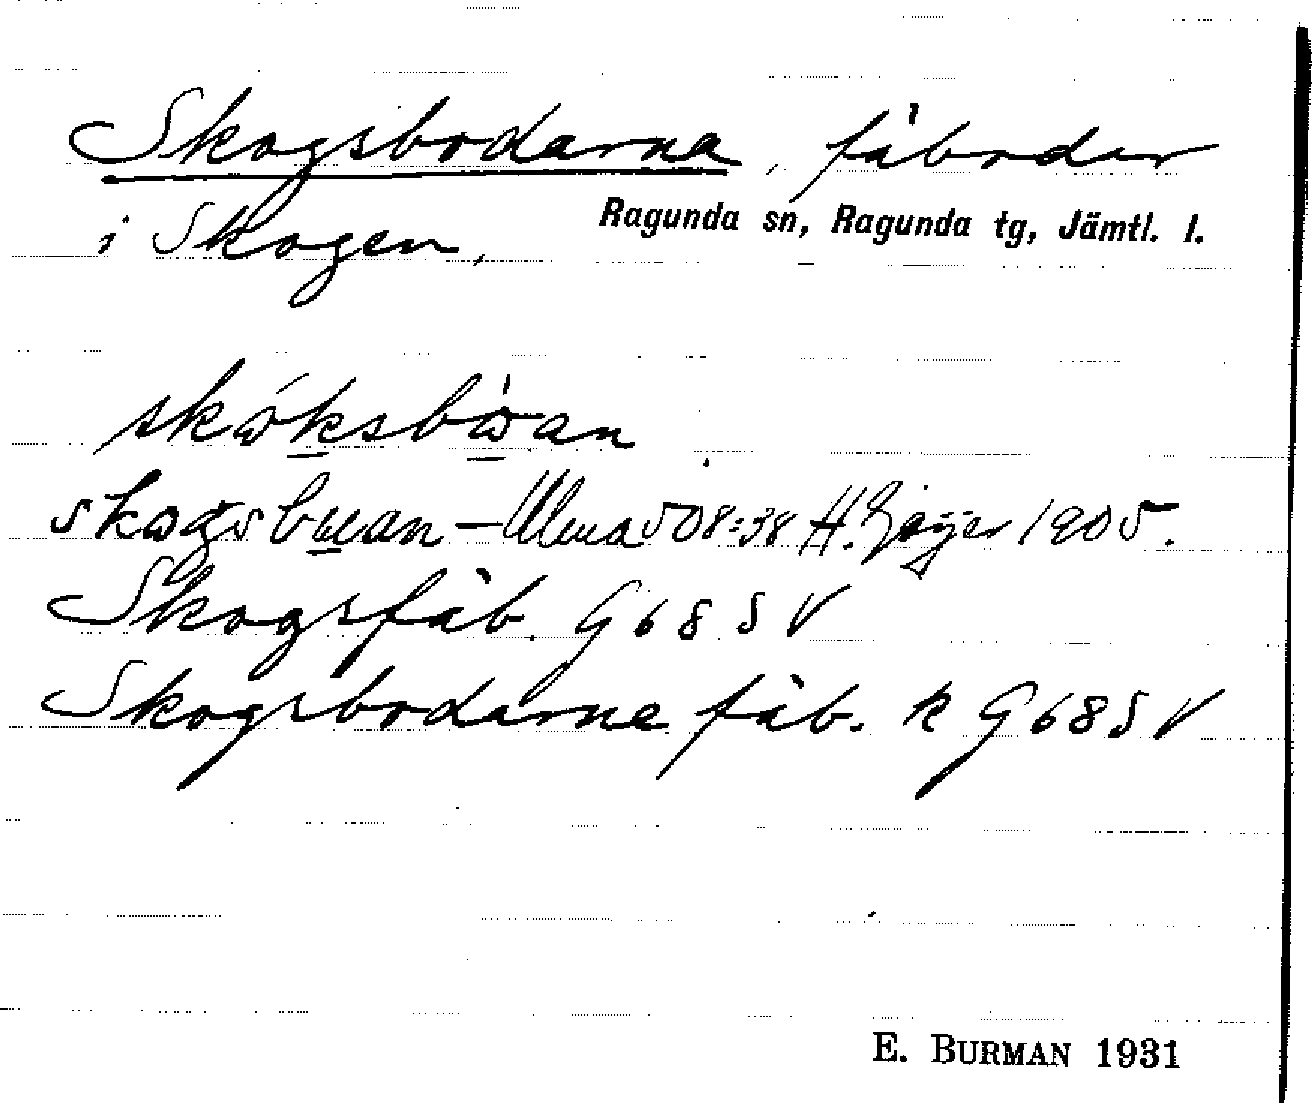 Skogsbodarna, fäboder
i Skogen, Ragunda sn, Ragunda tg, Jämtl. l.
skɷ́ksbɷ̀an
skogsbuan – Ulma 508:38 H. Geijer 1905.
Skogsfäb. G 68 S V
Skogsbodarne fäb. k G 68 S V
E. BURMAN 1931